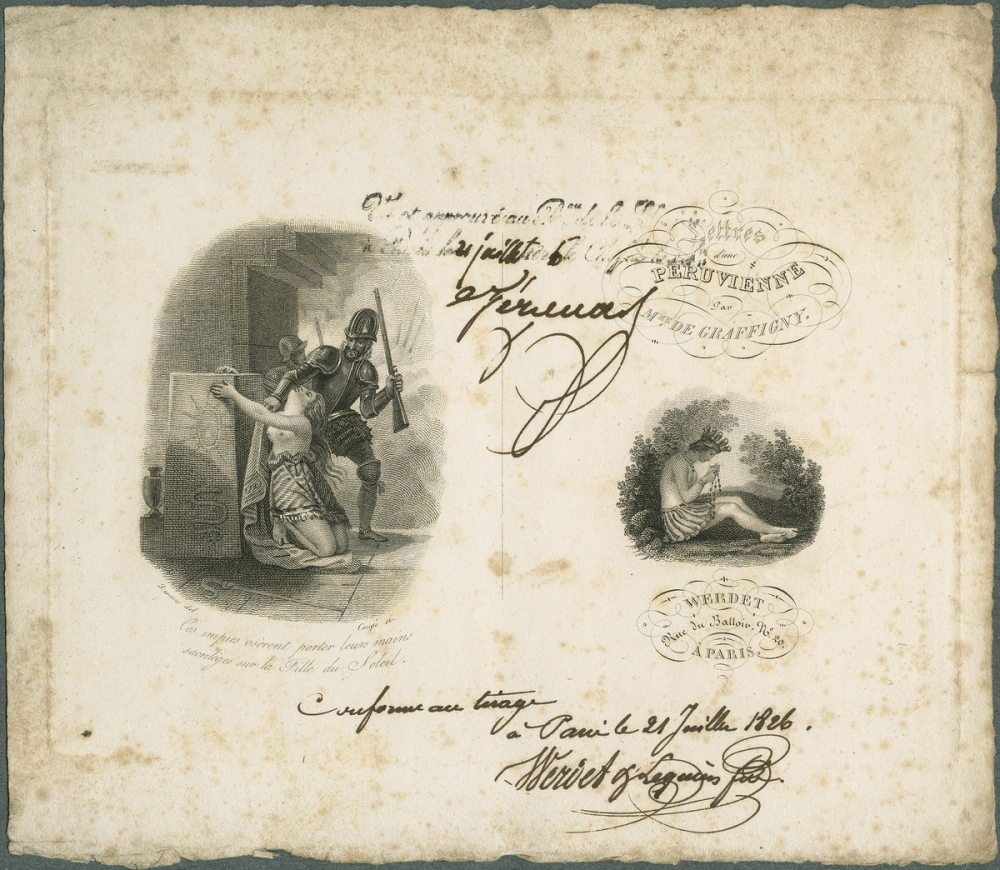 Vu et approuvé au
le 21 juillet 1826
Lettres
d'une
PÉRUVIENNE
Par
MME DE GRAFFIGNY.
WERDET
Rue du Battoir, No. 20,
À PARIS.
del
Coupé sc
Ces impies osèrent porter leurs mains
sacrilèges sur la Fille du Soleil.
Conforme au tirage
à Paris le 21 Juillet 1826.
Werdet & Lequien fils.